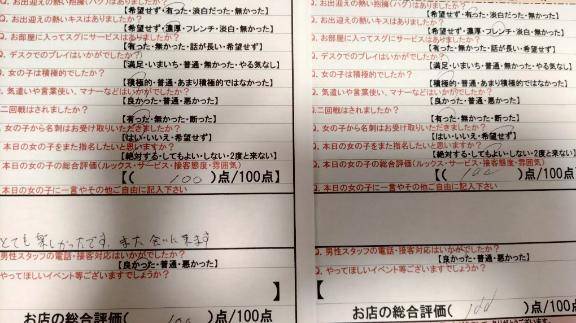 Q. お出迎えの熱い抱擁(ハグ)はありましたか?
【希望せず・有った・淡白だった・無かった】
Q. お出迎えの熱いキスはありましたか?
【希望せず・濃厚・フレンチ・淡白・無かった】
Q. お部屋に入ってスグにサービスはありましたか?
【有った・無かった・話が長い・希望せず】
Q. デスクでのプレイはいかがでしたか?
【満足・いまいち・普通・無かった・やる気なし】
Q. 女の子は積極的でしたか?
【積極的・普通・あまり積極的ではなかった】
Q. 気遣いや言葉使い、マナーなどはいかがでしたか?
【良かった・普通・悪かった】
二回戦はされましたか?
【有った・無かった・断った】
Q. 女の子から名刺はお受け取りいただきましたか?
【はい・いいえ・希望せず】
Q. 本日の女の子をまた指名したいと思いますか?
【絶対する・してもよい・しない・2度と来ない】
Q. 本日の女の子の総合評価(ルックス・サービス・接客態度・雰囲気)
【( 100 )点/100点】
Q. 本日の女の子に一言やその他ご自由に記入下さい
とても楽しかったです。また会いに来ます
男性スタッフの電話・接客対応はいかがでしたか?
【良かった・普通・悪かった】
やってほしいイベント等ございますでしょうか?
お店の総合評価( 100 )点/100点
Q. お出迎えの熱い抱擁(ハグ)はありましたか?
【希望せず・有った・淡白だった・無かった】
Q. お出迎えの熱いキスはありましたか?
【希望せず・濃厚・フレンチ・淡白・無かった】
Q. お部屋に入ってスグにサービスはありましたか?
【有った・無かった・話が長い・希望せず】
Q. デスクでのプレイはいかがでしたか?
【満足・いまいち・普通・無かった・やる気なし】
Q. 女の子は積極的でしたか?
【積極的・普通・あまり積極的ではなかった】
Q. 気遣いや言葉使い、マナーなどはいかがでしたか?
【良かった・普通・悪かった】
二回戦はされましたか?
【有った・無かった・断った】
Q. 女の子から名刺はお受け取りいただきましたか?
【はい・いいえ・希望せず】
Q. 本日の女の子をまた指名したいと思いますか?
【絶対する・してもよい・しない・2度と来ない】
Q. 本日の女の子の総合評価(ルックス・サービス・接客態度・雰囲気)
【( 100 )点/100点】
Q. 本日の女の子に一言やその他ご自由に記入下さい
Q. 男性スタッフの電話・接客対応はいかがでしたか?
【良かった・普通・悪かった】
Q. やってほしいイベント等ございますでしょうか?
【
お店の総合評価( 100 )点/100点